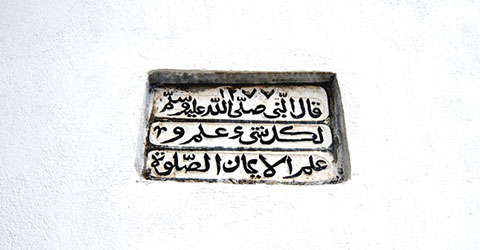 ١٢٧٧
قال النبى صلى الله عليه وسلم
لكل شىء علم و
علم الايمان الصلوة